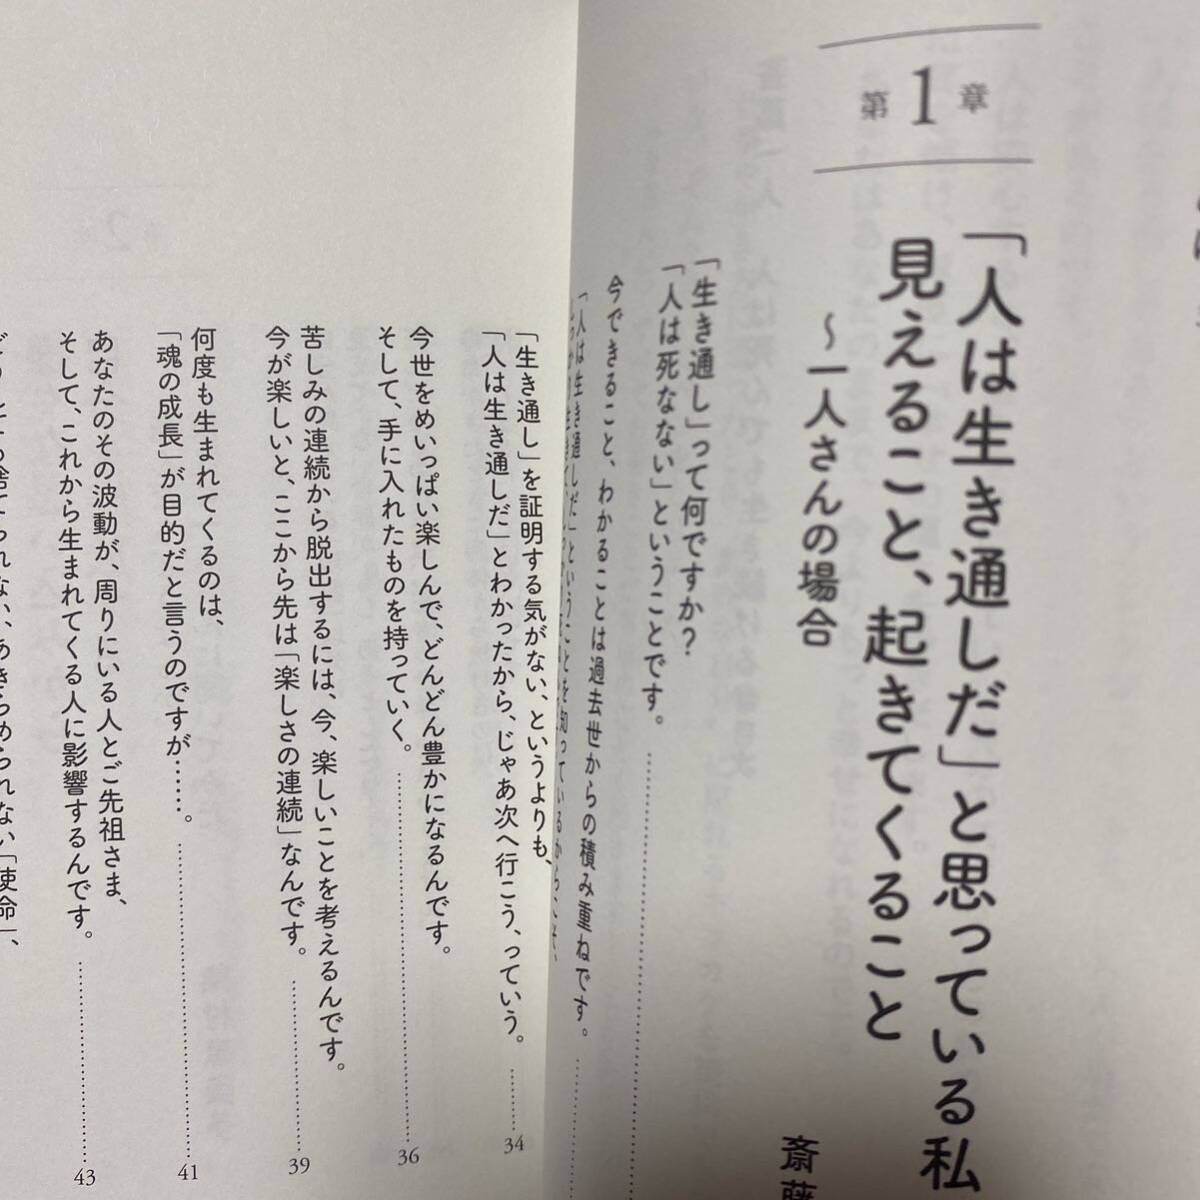 第1章
「人は生き通しだ」と思っている私
見えること、起きてくること
〜一人さんの場合
斎藤
「生き通し」って何ですか?
「人は死なない」ということです。
今できること、わかることは過去世からの積み重ねです。
「人は生き通しだ」ということを知っているからこそ、
「生き通し」を証明する気がない、というよりも、
「人は生き通しだ」とわかったから、じゃあ次へ行こう、っていう。 34
今世をめいっぱい楽しんで、どんどん豊かになるんです。
そして、手に入れたものを持っていく。 36
苦しみの連続から脱出するには、今、楽しいことを考えるんです。
今が楽しいと、ここから先は「楽しさの連続」なんです。 39
何度も生まれてくるのは、
「魂の成長」が目的だと言うのですが……。 41
あなたのその波動が、周りにいる人とご先祖さま、
そして、これから生まれてくる人に影響するんです。 43
捨てられない、あきらめられない「使命」、